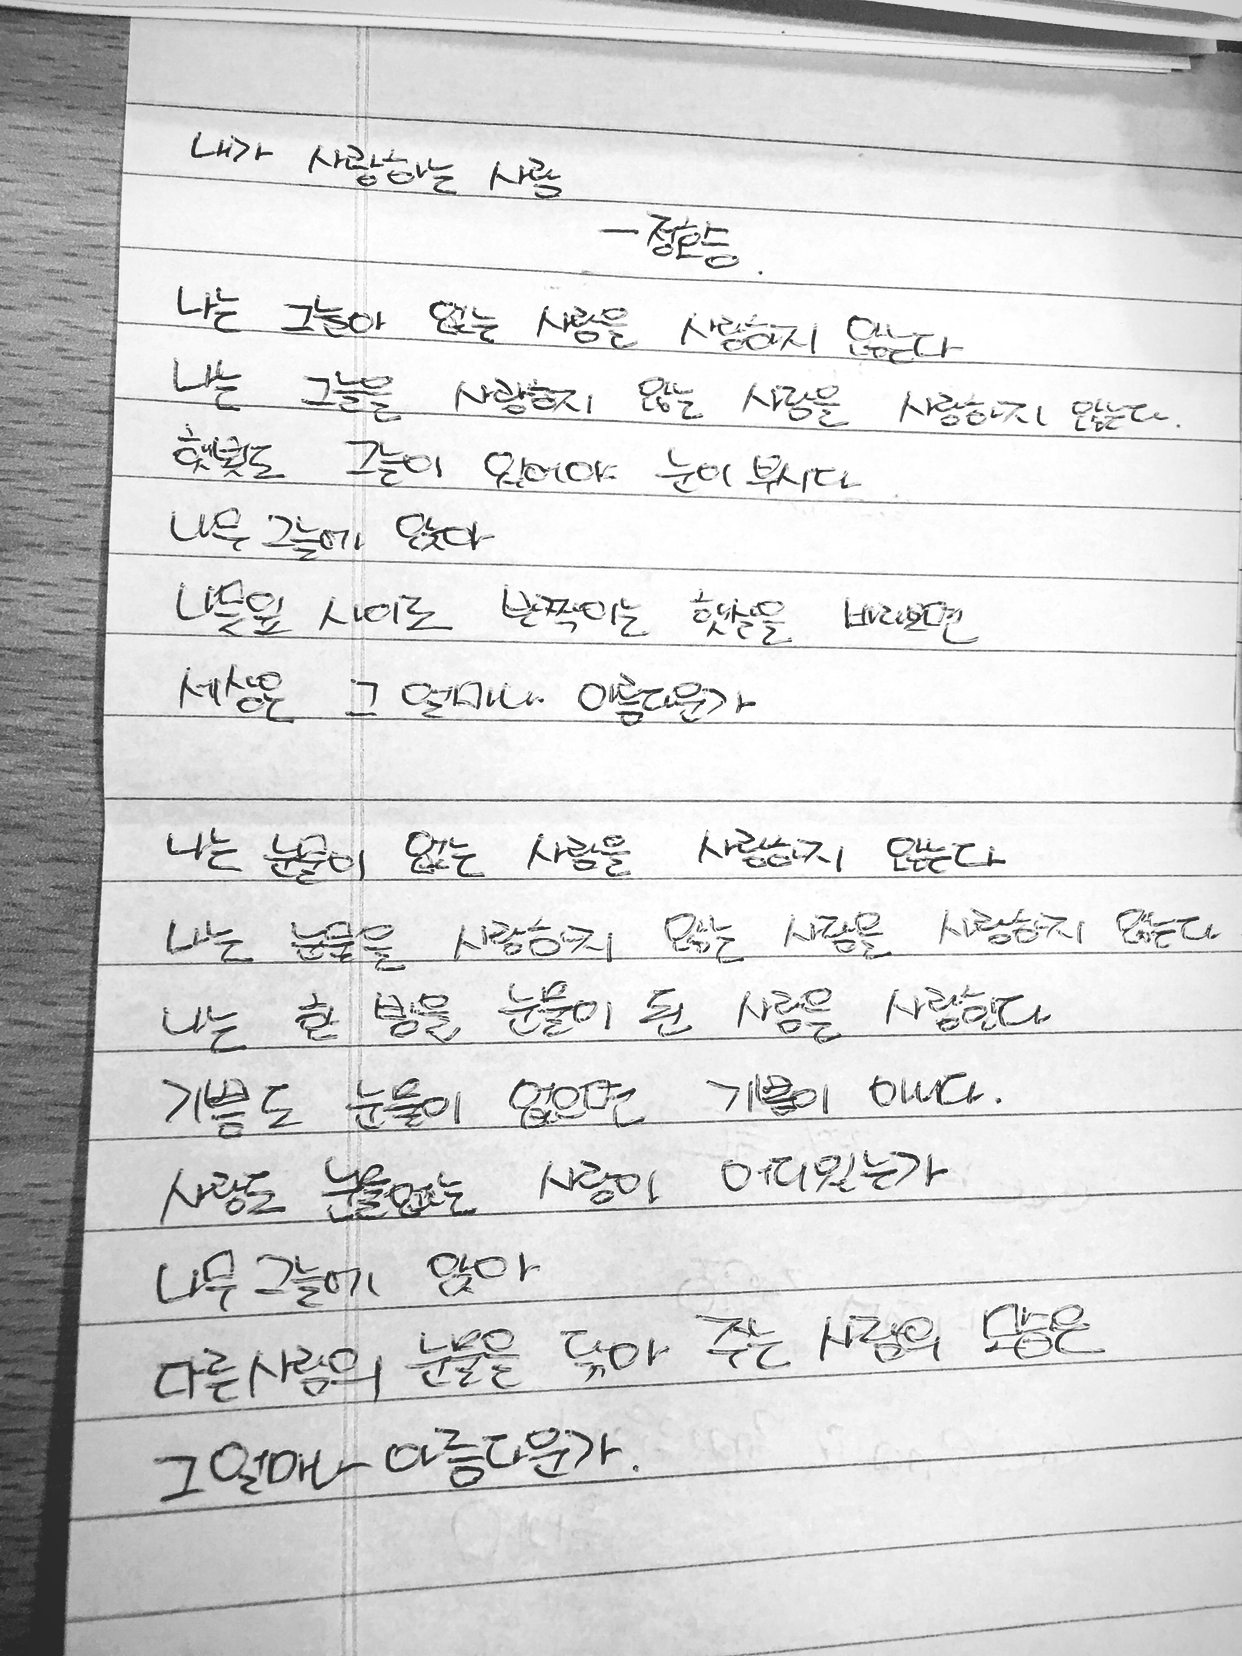 내가 사랑하는 사람
- 정호승.
나는 그늘이 없는 사람을 사랑하지 않는다
나는 그늘을 사랑하지 않는 사람을 사랑하지 않는다.
햇빛도 그늘이 있어야 눈이 부시다
나무 그늘에 앉아
나뭇잎 사이로 반짝이는 햇살을 바라보면
세상은 그 얼마나 아름다운가
나는 눈물이 없는 사람을 사랑하지 않는다
나는 눈물을 사랑하지 않는 사람을 사랑하지 않는다
나는 한 방울 눈물이 된 사람을 사랑한다
기쁨도 눈물이 없으면 기쁨이 아니다.
사랑도 눈물없는 사랑이 어디있는가
나무 그늘에 앉아
다른사람의 눈물을 닦아 주는 사람의 모습은
그얼마나 아름다운가.